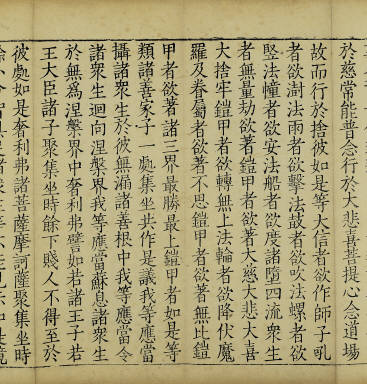 於慈常能普念行於大悲喜菩提心念道場
故而行於捨彼如是等大信者欲作師子吼
者欲澍法雨者欲擊法鼓者欲吹法螺者欲
竪法幢者欲安法船者欲度諸四流衆生
者無量劫欲著鎧甲者欲著大慈大悲大喜
大捨牢鎧甲者欲轉無上法輪者欲降伏魔
羅及眷屬者欲著不思鎧甲者欲著無比鎧
甲者欲著諸三界最勝最上鎧甲者如是等
類諸善家子一處集坐共作是議我等應當
攝諸衆生於彼無漏諸善根中我等應當令
諸衆生迴向涅槃界我等應當穌息諸衆生
於無爲涅槃界中奢利弗譬如若諸王子若
王大臣諸子聚集坐時餘下賤人不得至於
彼處如是奢利弗諸菩薩摩訶薩聚集坐時